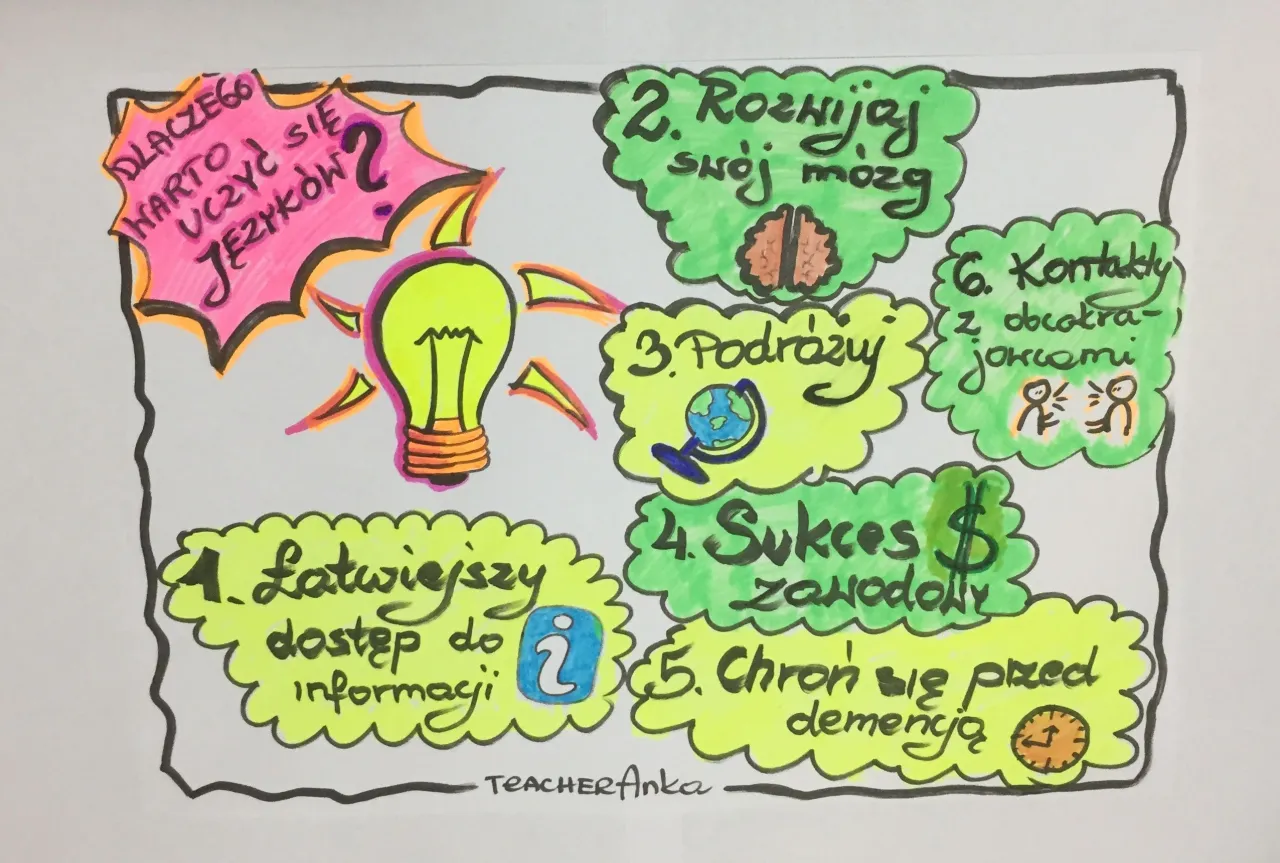 DLACZEGO
WARTO
UCZYĆ SIĘ
JĘZYKÓW?
1. Łatwiejszy
dostęp do
informacji
i
2. Rozwijaj
swój mózg
3. Podróżuj
4. Sukces $
zawodowy
5. Chroń się przed
demencją
6. Kontakty
z obcokra-
jowcami
TEACHERAnka